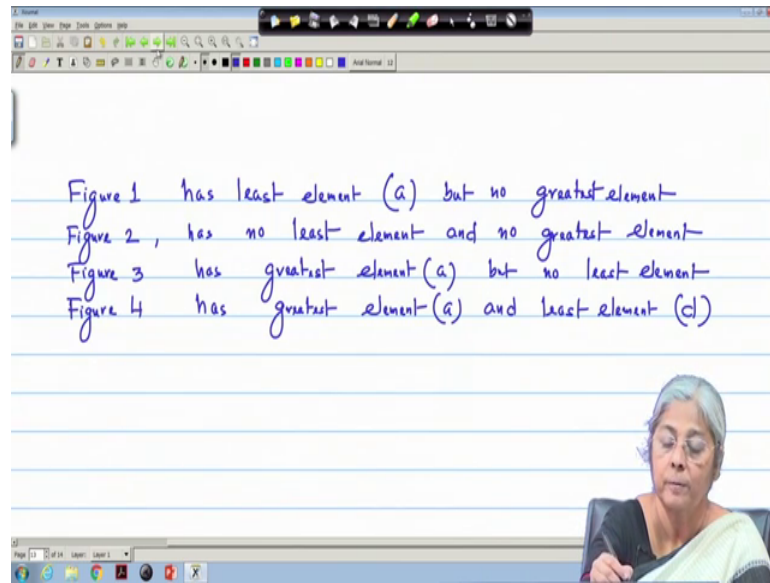 File Edit View Page Tools Options Help
Arial Normal 12
Figure 1 has least element (a) but no greatest element
Figure 2, has no least element and no greatest element
Figure 3 has greatest element (a) but no least element
Figure 4 has greatest element (a) and least element (d)
Page 13 of 14 Layer: Layer 1